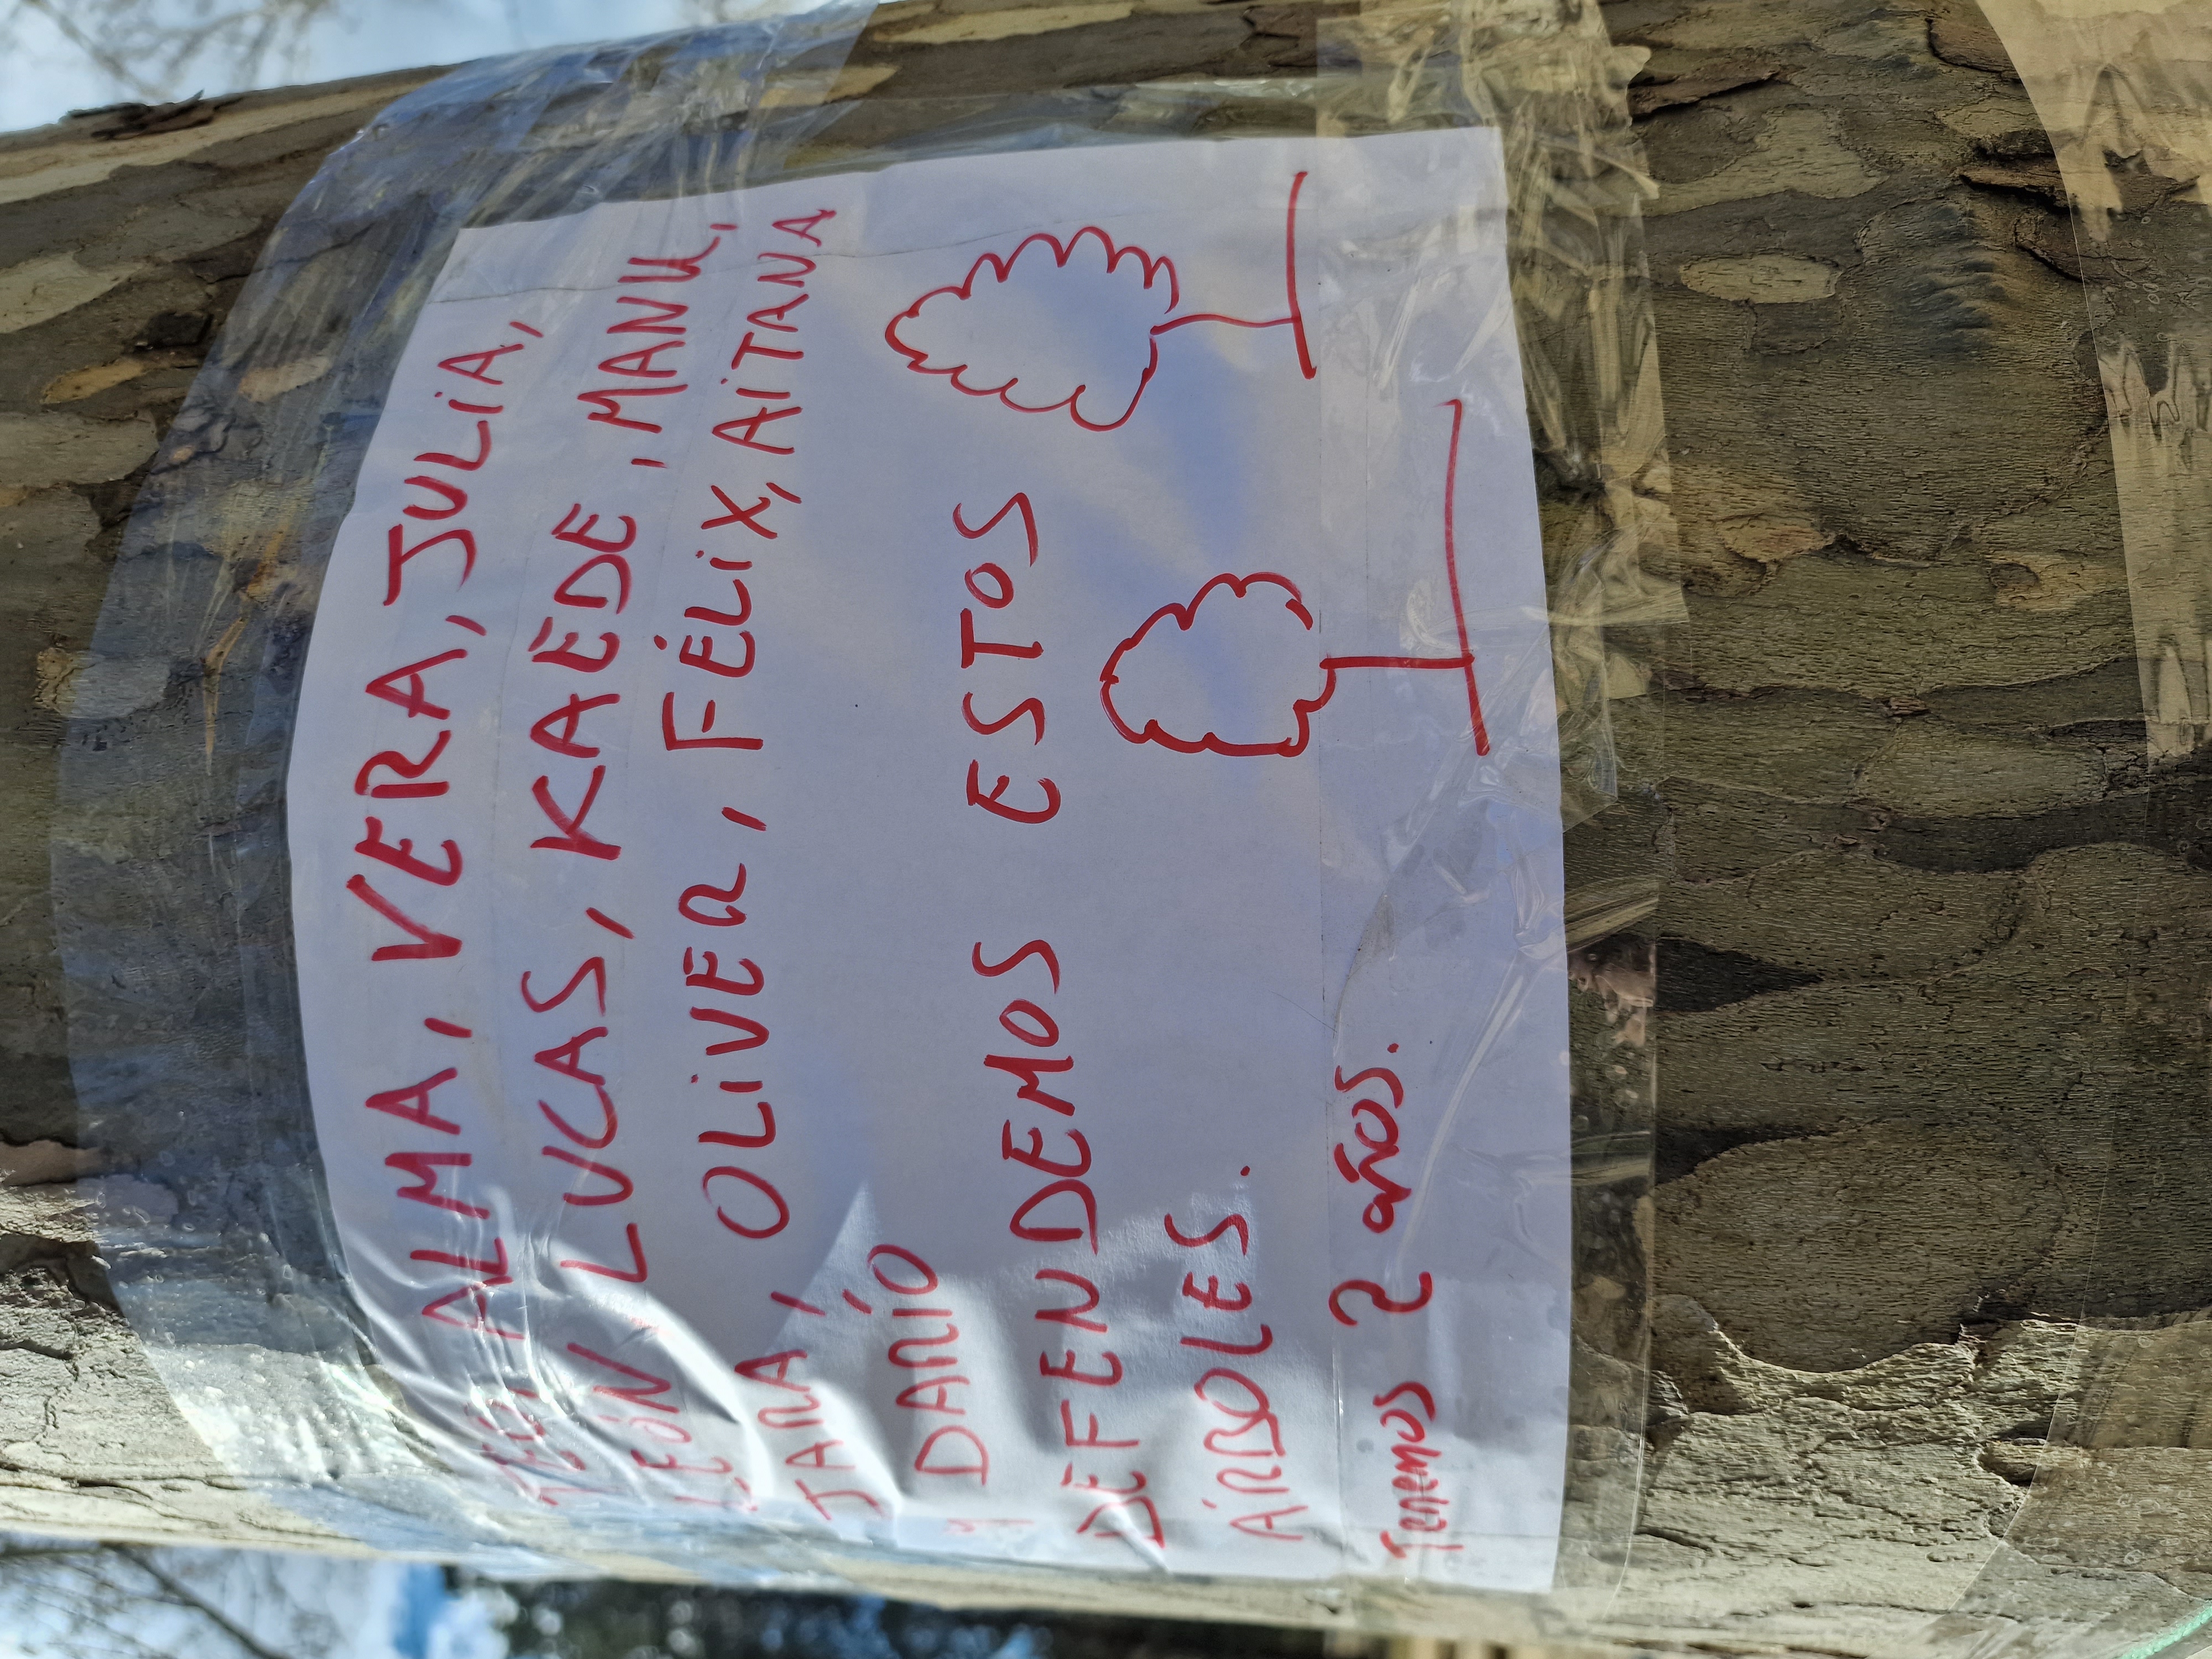 ALMA, VERA, JULIA,
LEÓN LUCAS, KAEDE, MANU,
JARA, OLIVER, FÉLIX, AITANA
Y DARÍO
DEFENDEMOS ESTOS
ÁRBOLES.
Tenemos 2 años.